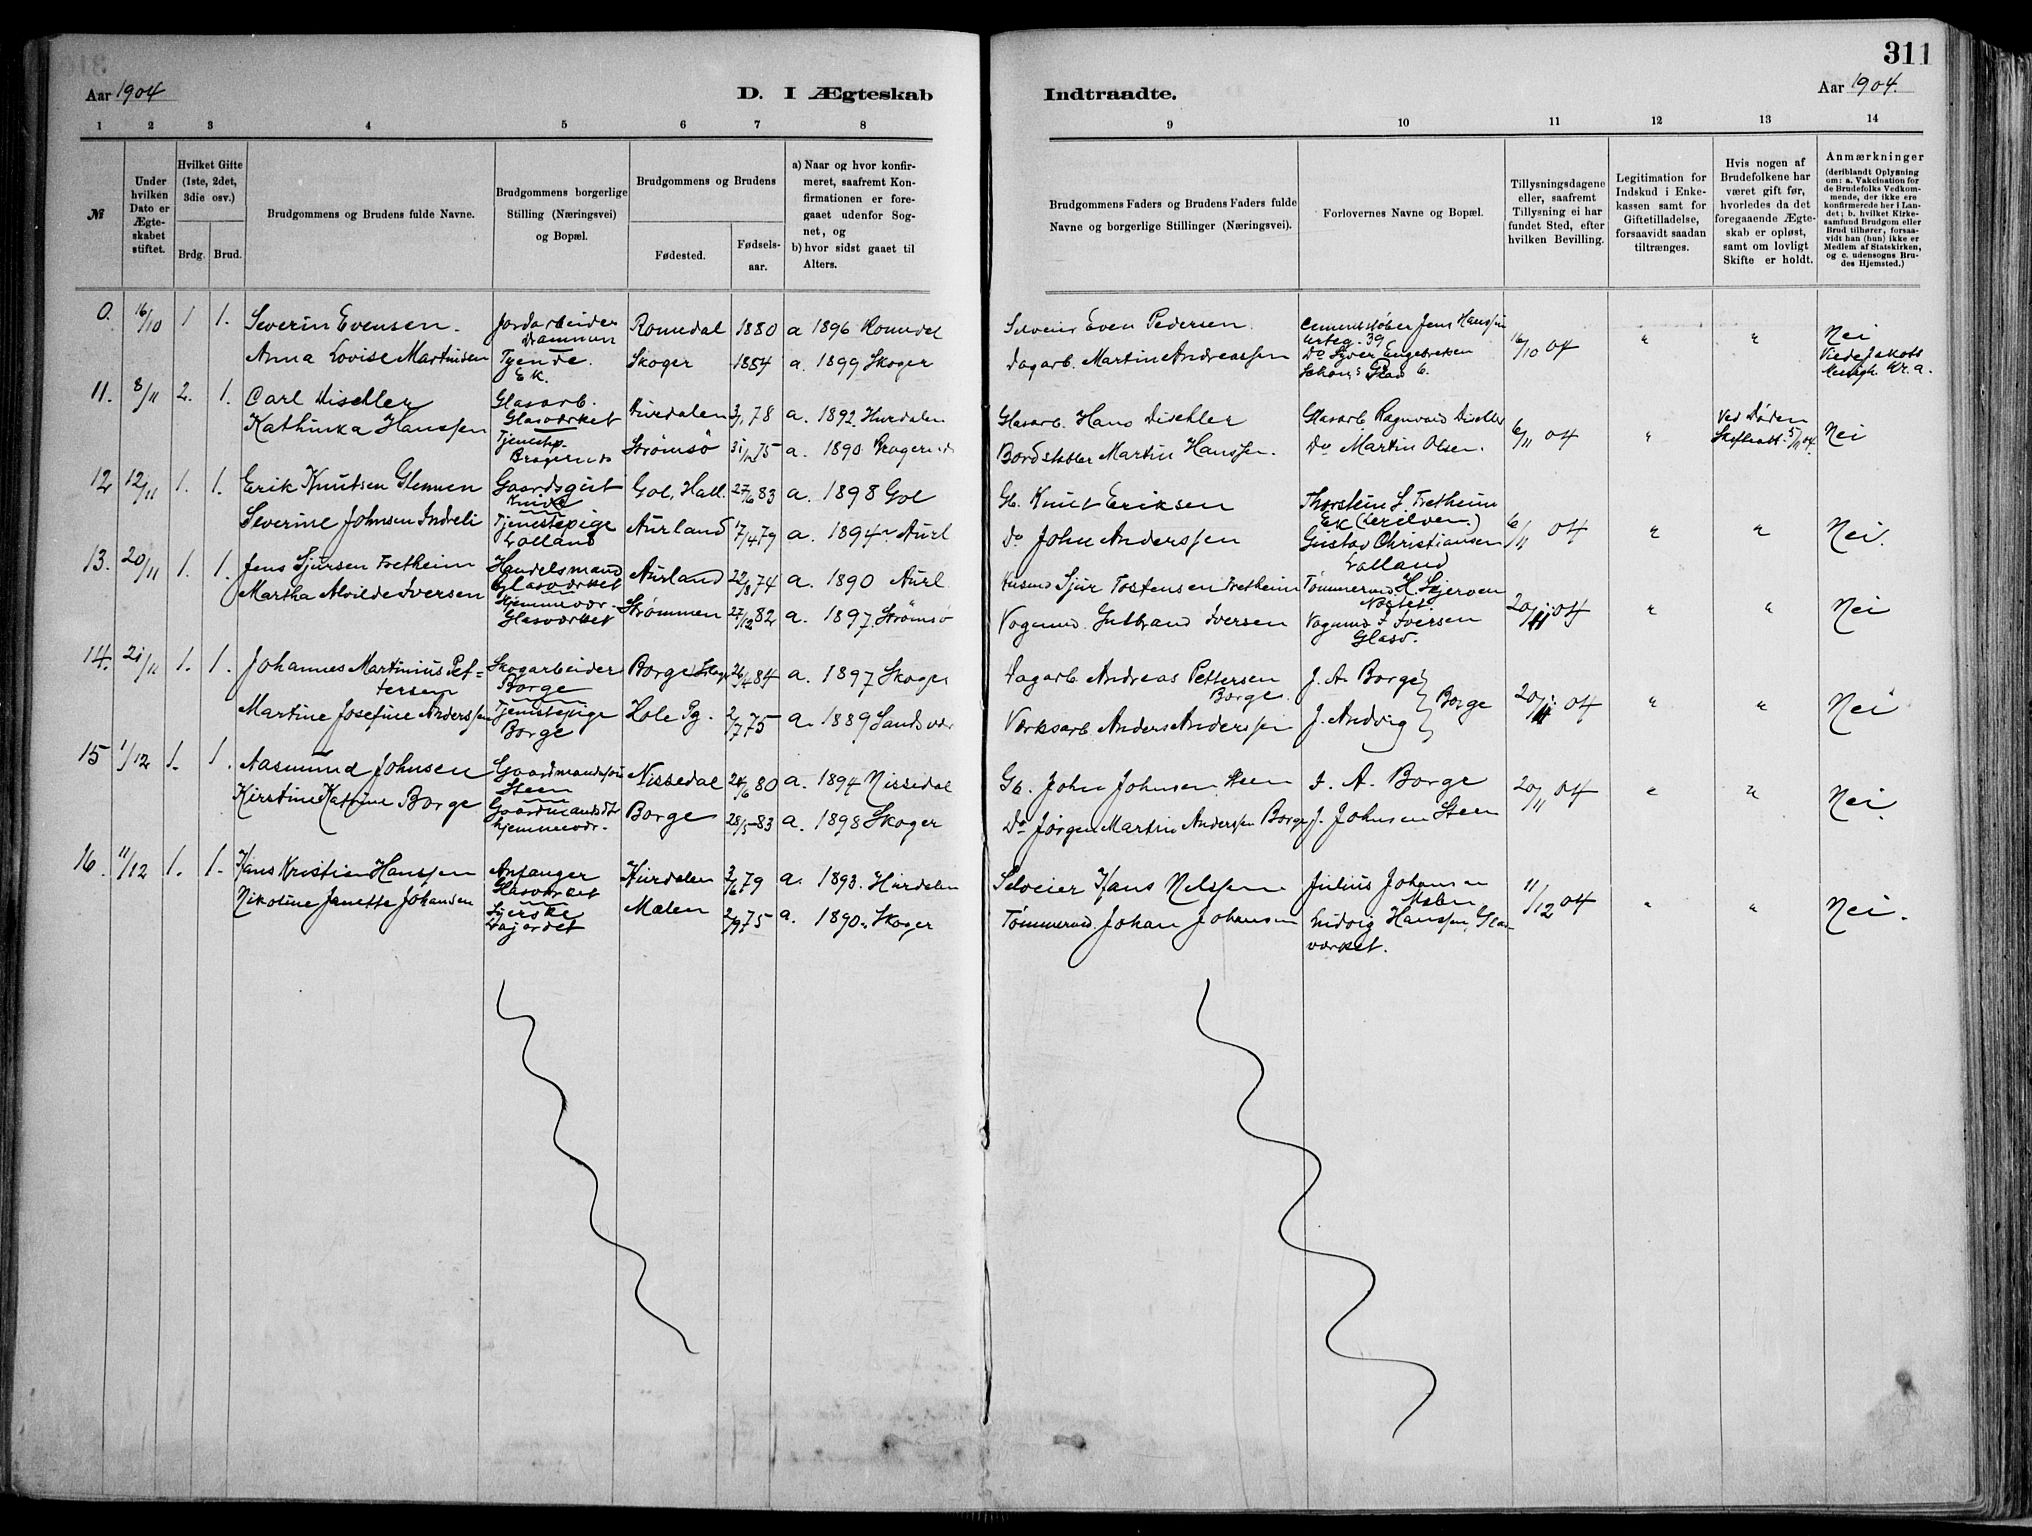 311
Aar 1904
D. I Ægteskab
Indtraadte.
Aar 1904.
1 2 3 4 5 6 7 8 9 10 11 12 13 14
№
Under hvilken Dato er Ægteskabet stiftet.
Hvilket Gifte (1ste, 2det, 3die osv.)
Brdg. Brud.
Brudgommens og Brudens fulde Navne.
Brudgommens borgerlige Stilling (Næringsvei) og Bopæl.
Brudgommens og Brudens
Fødested.
Fødsels-aar.
a) Naar og hvor konfirmeret, saafremt Konfirmationen er foregaaet udenfor Sognet, og
b) hvor sidst gaaet til Alters.
Brudgommens Faders og Brudens Faders fulde Navne og borgerlige Stillinger (Næringsvei).
Forlovernes Navne og Bopæl.
Tillysningsdagene eller, saafremt Tillysning ei har fundet Sted, efter hvilken Bevilling.
Legitimation for Indskud i Enkekassen samt for Giftetilladelse, forsaavidt saadan tiltrænges.
Hvis nogen af Brudefolkene har været gift før, hvorledes da det foregaaende Ægteskab er opløst, samt om lovligt Skifte er holdt.
Anmærkninger
(deriblandt Oplysning om: a. Vakcination for de Brudefolks Vedkommende, der ikke ere konfirmerede her i Landet; b. hvilket Kirkesamfund Brudgom eller Brud tilhører, forsaavidt han (hun) ikke er Medlem af Statskirken, og c. udensogns Brudes Hjemsted.)
0. 16/10 1 1. Severin Evensen. Jordarbeider Drammen Romedal 1880 a 1896 Romedal Selveier Even Pedersen Cementstøber Jens Hanssen 39 16/10 04 " " Nei
Anna Lovise Martinsen Tyende Ek. Skoger 1854 a. 1899 Skoger Dagarb. Martin Andreassen Do Syver Engebretsen Viede Jakobs Kr.a.
11. 8/11 2. 1. Carl Dischler Glasarb. Glasværket Hurdalen 3/1 78 a. 1892. Hurdalen Glasarb. Hans Dischler Glasarb Ragnvald Dischler 6/11 04 " Ved Døden Skifteatt. 5/11 04. Nei
Kathinka Hanssen Tjenestp. Bragernes Strømsø 31/12 75 a. 1890 Bragernes Bordstabler Martin Hanssen. Do Martin Olsen.
12 12/11 1. 1. Erik Knutsen Glemmen Gaardsgut Gol, Hall. 27/6 83 a. 1898 Gol Gb. Knut Eriksen Thorstein S. Fretheim Ek 6/11 04 " " Nei.
Severine Johnsen Indreli Tjenestepige Lolland Aurland 17/4 79 a. 1894 Aurl Do John Anderssen Gustav Christiansen Lolland
13. 20/11 1. 1. Jens Sjursen Fretheim Handelsmand Glasværket Aurland 22/8 74 a. 1890 Aurl Husmd Sjur Tostensen Fretheim Tømmermd H. Skjerven 20/11 04 " " Nei
Martha Alvilde Iversen Hjemmevær. Glasværket Strømmen 27/12 82 a. 1897. Strømsø Vognmd. Gulbrand Iversen Vognmd I. Iversen Glasv.
14. 21/11 1. 1. Johannes Martinius Pettersen Skogarbeider Borge Borge Skoger 26/4 84 a. 1897 Skoger Dagarb. Andreas Pettersen Borge. J. A. Borge Borge 20/11 04 " " Nei
Martine Josefine Anderssen Tjenestepige Borge Hole Pg. 2/7 75 a. 1889 Sandsvær Værksarb. Anders Anderssen J. Andvig
15 1/12 1. 1. Aasmund Johnsen Gaardmandssøn Steen Nissedal 24/6 80 a. 1894 Nissedal Gb. John Johnsen Steen J. A. Borge 20/11 04 " " Nei.
Kirstine Katrine Borge Gaardmandsdt hjemmevær. Borge 28/5 83 a. 1898 Skoger Do Jørgen Martin Andersen Borge J. Johnsen Steen
16. 11/12 1. 1. Hans Kristian Hanssen Anfanger Glasværket Hurdalen 3/6 79 a. 1893. Hurdalen Selveier Hans Nilssen Julius Johansen 11/12 04 " " Nei.
Nikoline Janette Johansen Syerske Lajordet Mælen 2/9 75 a. 1890. Skoger Tømmermd. Johan Johansen Ludvig Hanssen, Glasværket.